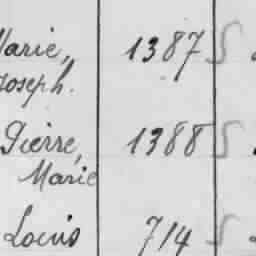 Marie, 1387 S
Joseph.
Pierre, 1388 S
Marie
Louis 714 S